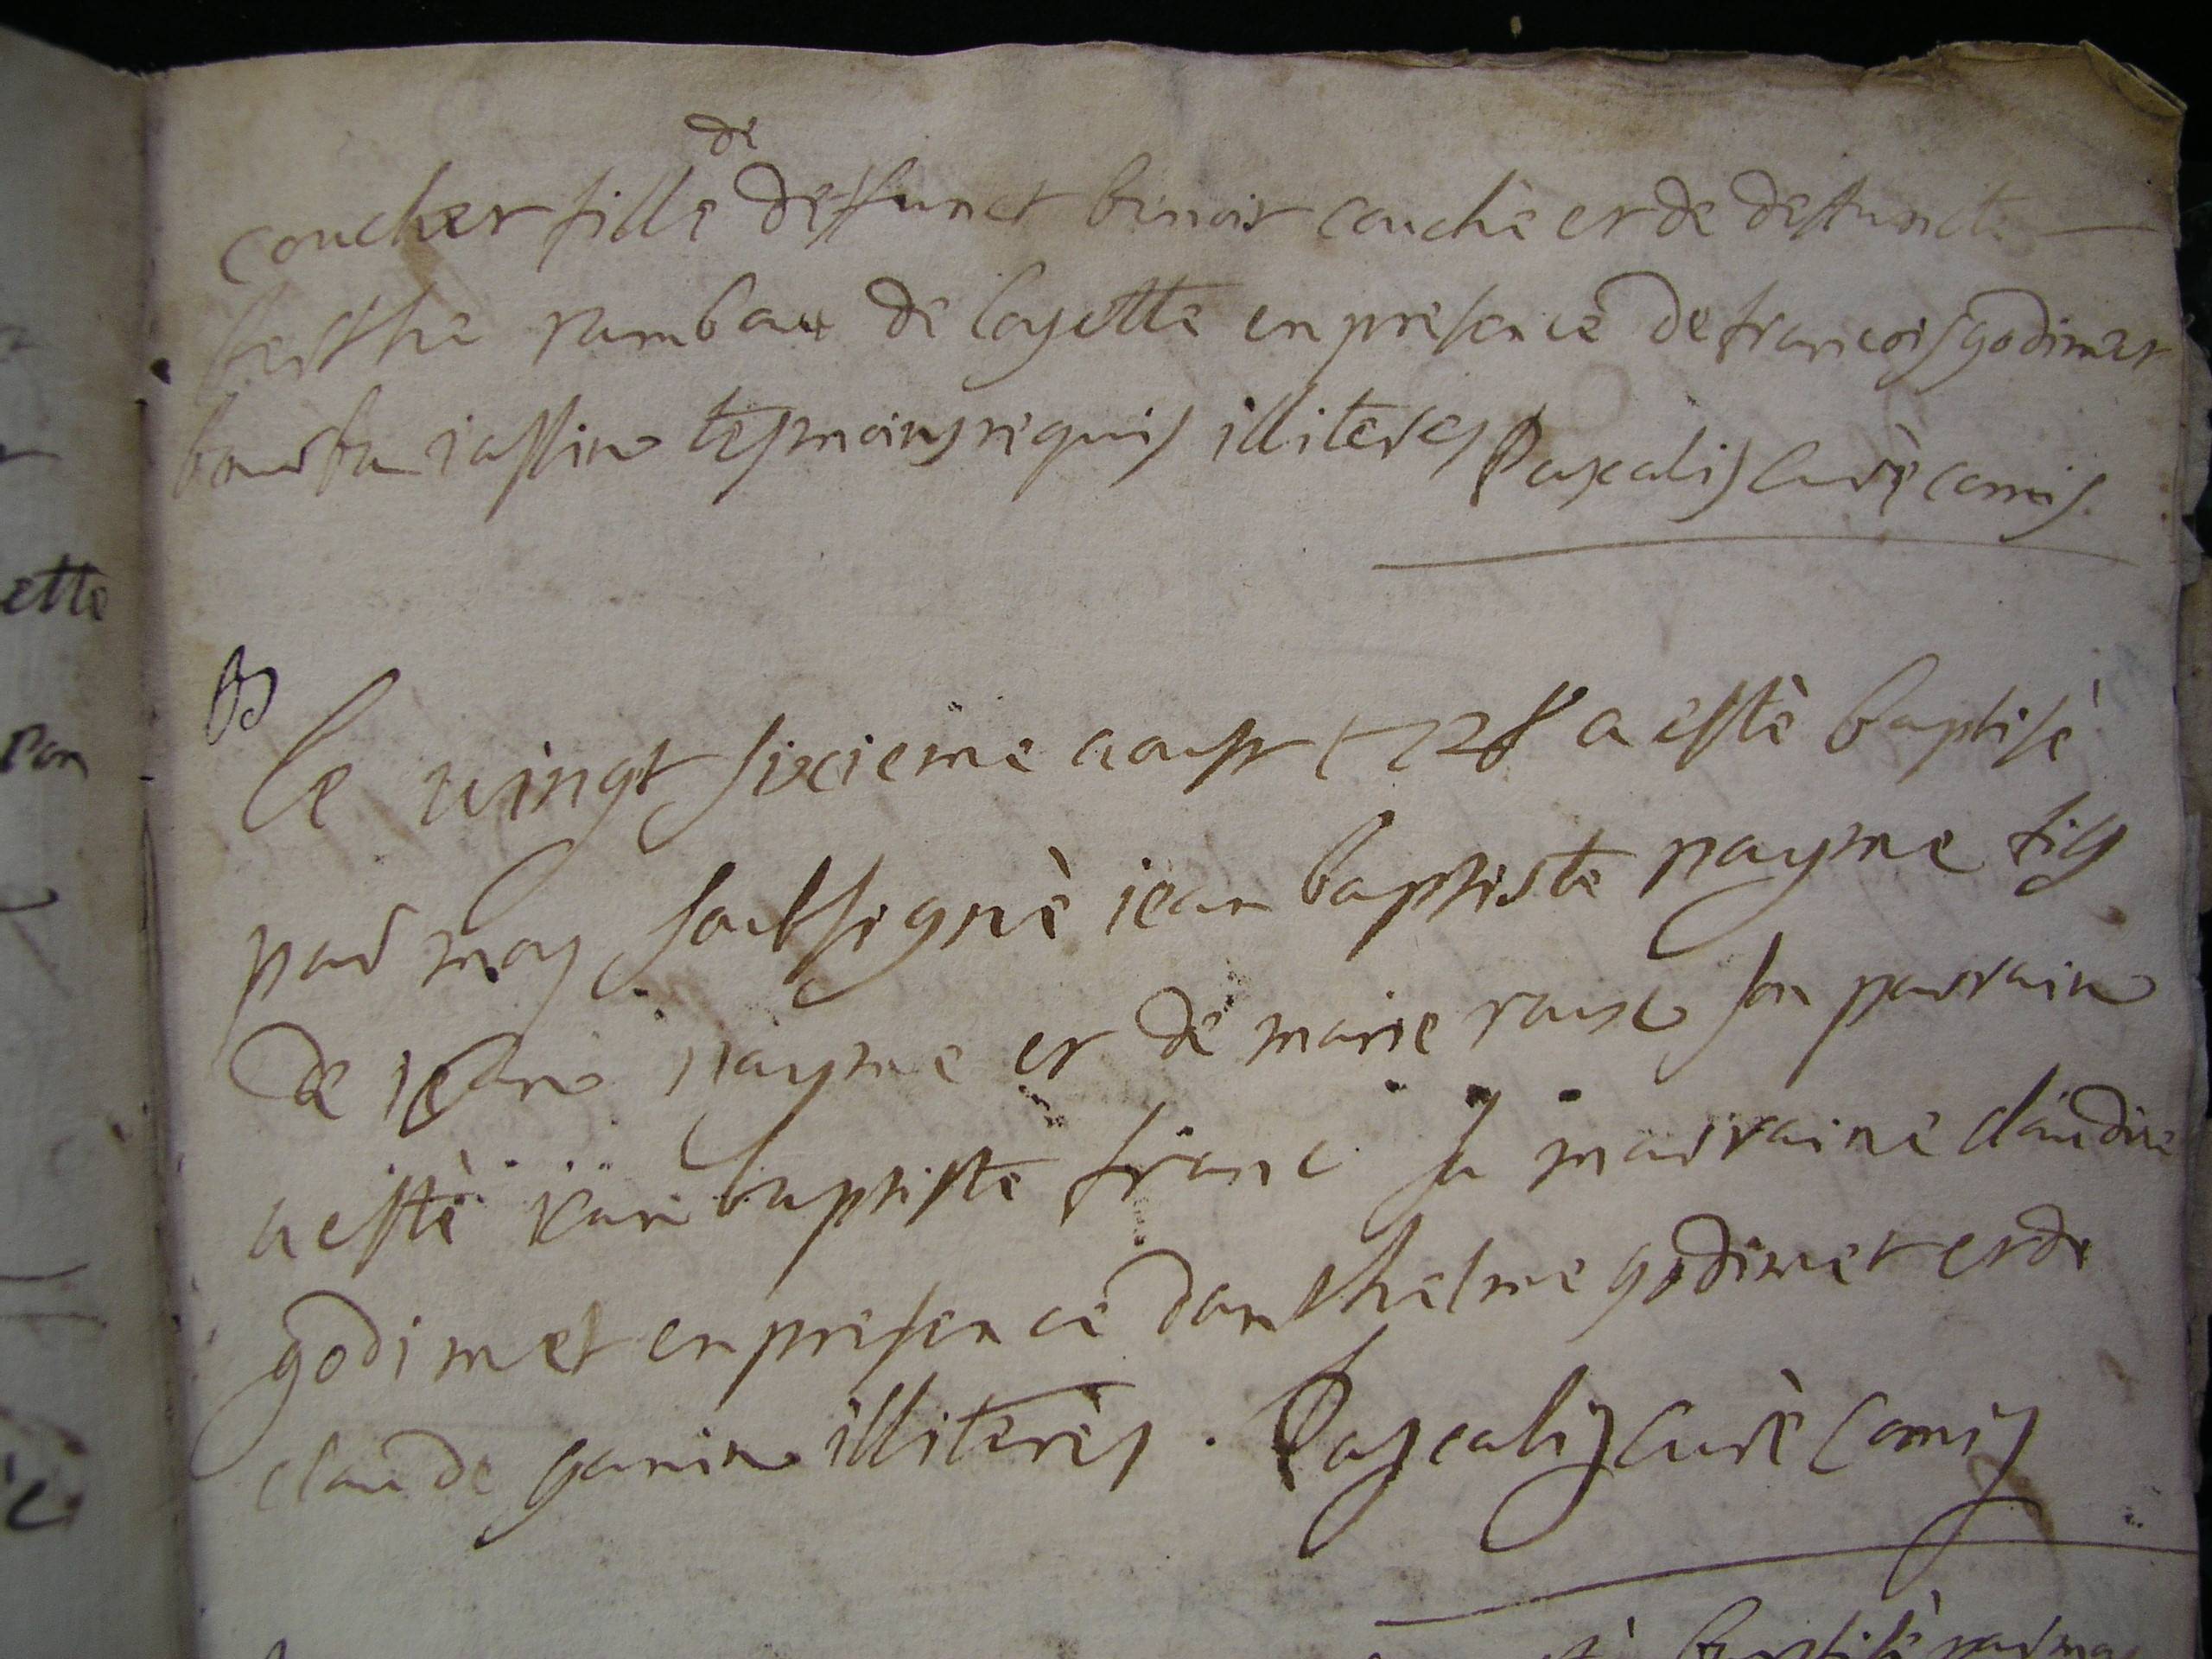 de
coucher fille deffunct benoit couchè et de deffuncte
berthe rambau de layette en presence de francois godimet
iassin tesmoins requis illiteres Pascalis curè comis
B
le vingt sixieme aoust 1728 a estè baptisè
par moy soubsignè iean baptiste payme fils
de iean payme et de marie roux son parrain
a estè iean baptiste franc sa marraine claudine
godimet en presence danthelme godimet et de
claude ganin illiterès . Pascalis curè comis
baptisè par moy
ette